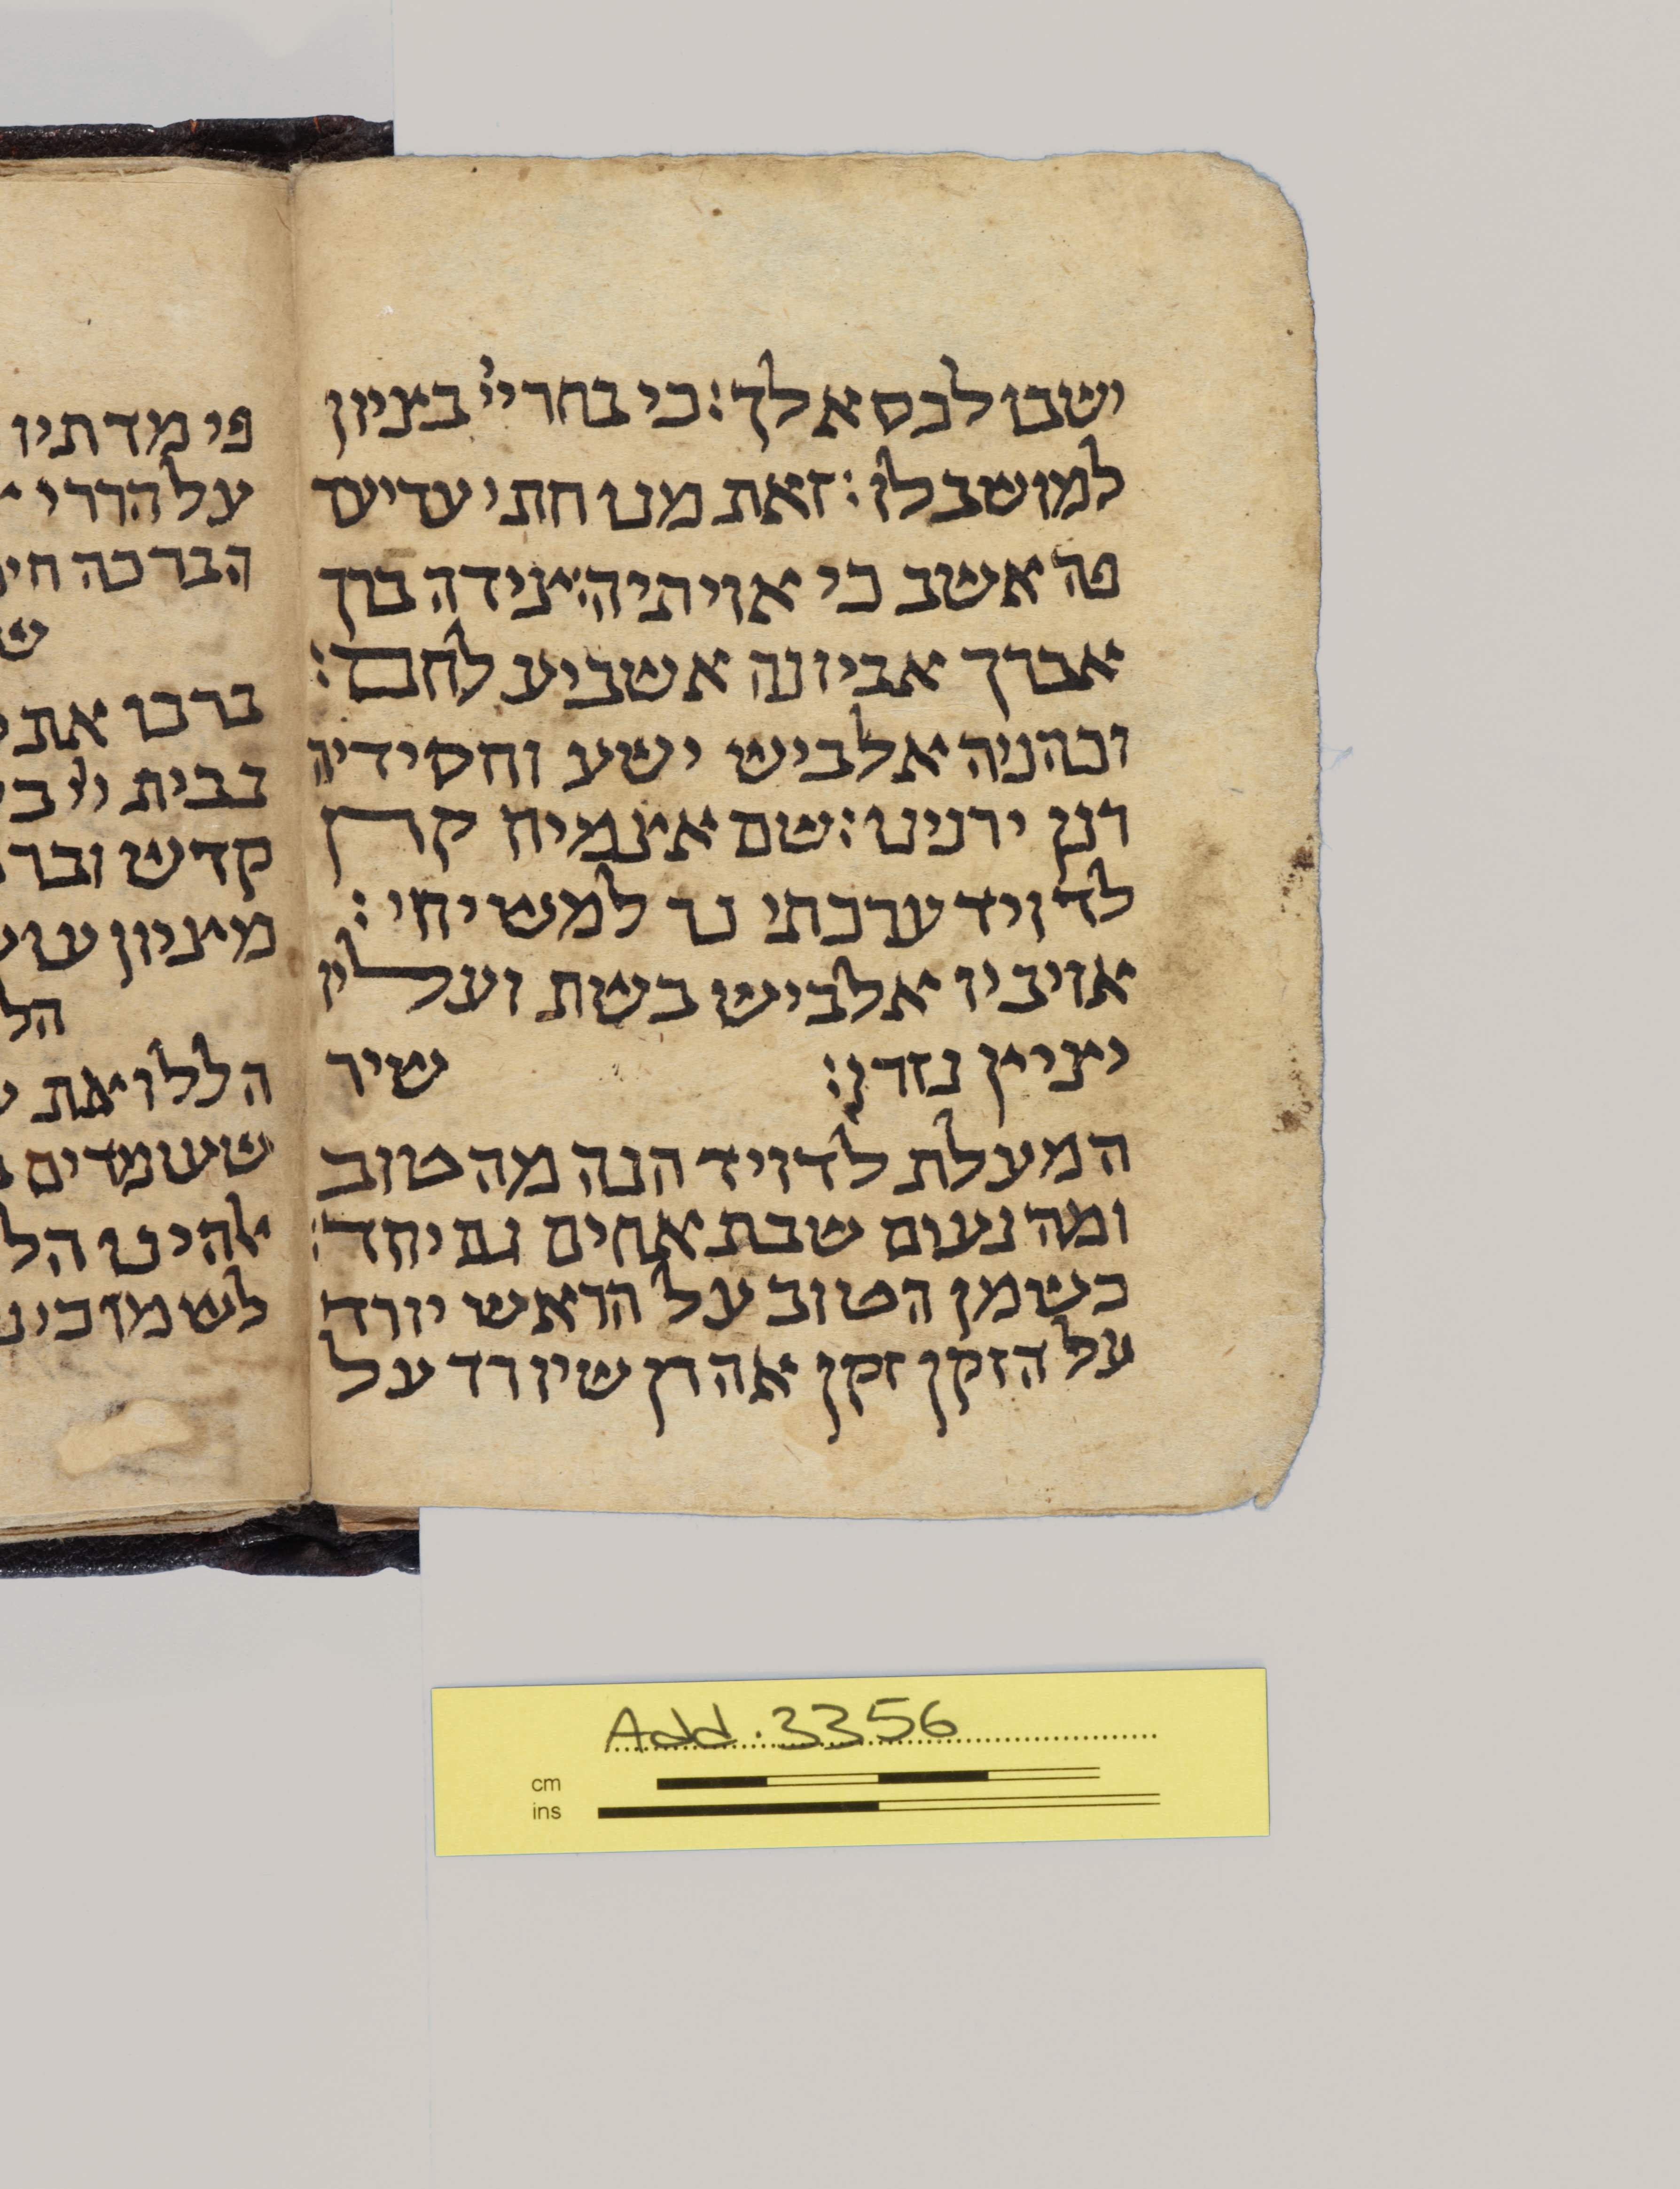 ישבו לכסא לך: כי בחר ייי בציון
למושב לו: זאת מנוחתי עדי עד
פה אשב כי אויתיה: צידה ברך
אברך אביונה אשביע לחם:
וכהניה אלביש ישע וחסידיה
רנן ירנינו: שם אצמיח קרן
לדויד ערכתי נר למשיחי:
אויביו אלביש בשת ועליו
יציץ נזרו: שיר
המעלת לדויד הנה מה טוב
ומה נעים שבת אחים גם יחד:
כשמן הטוב על הראש יורד
על הזקן זקן אהרן שיורד על
פי מדתיו
על הררי
הברכה
ברכו את
בבית ייי
קדש וברכו
מציון
הללו את
שעמדים
אלהינו
לשמו כי
Add. 3356
cm
ins